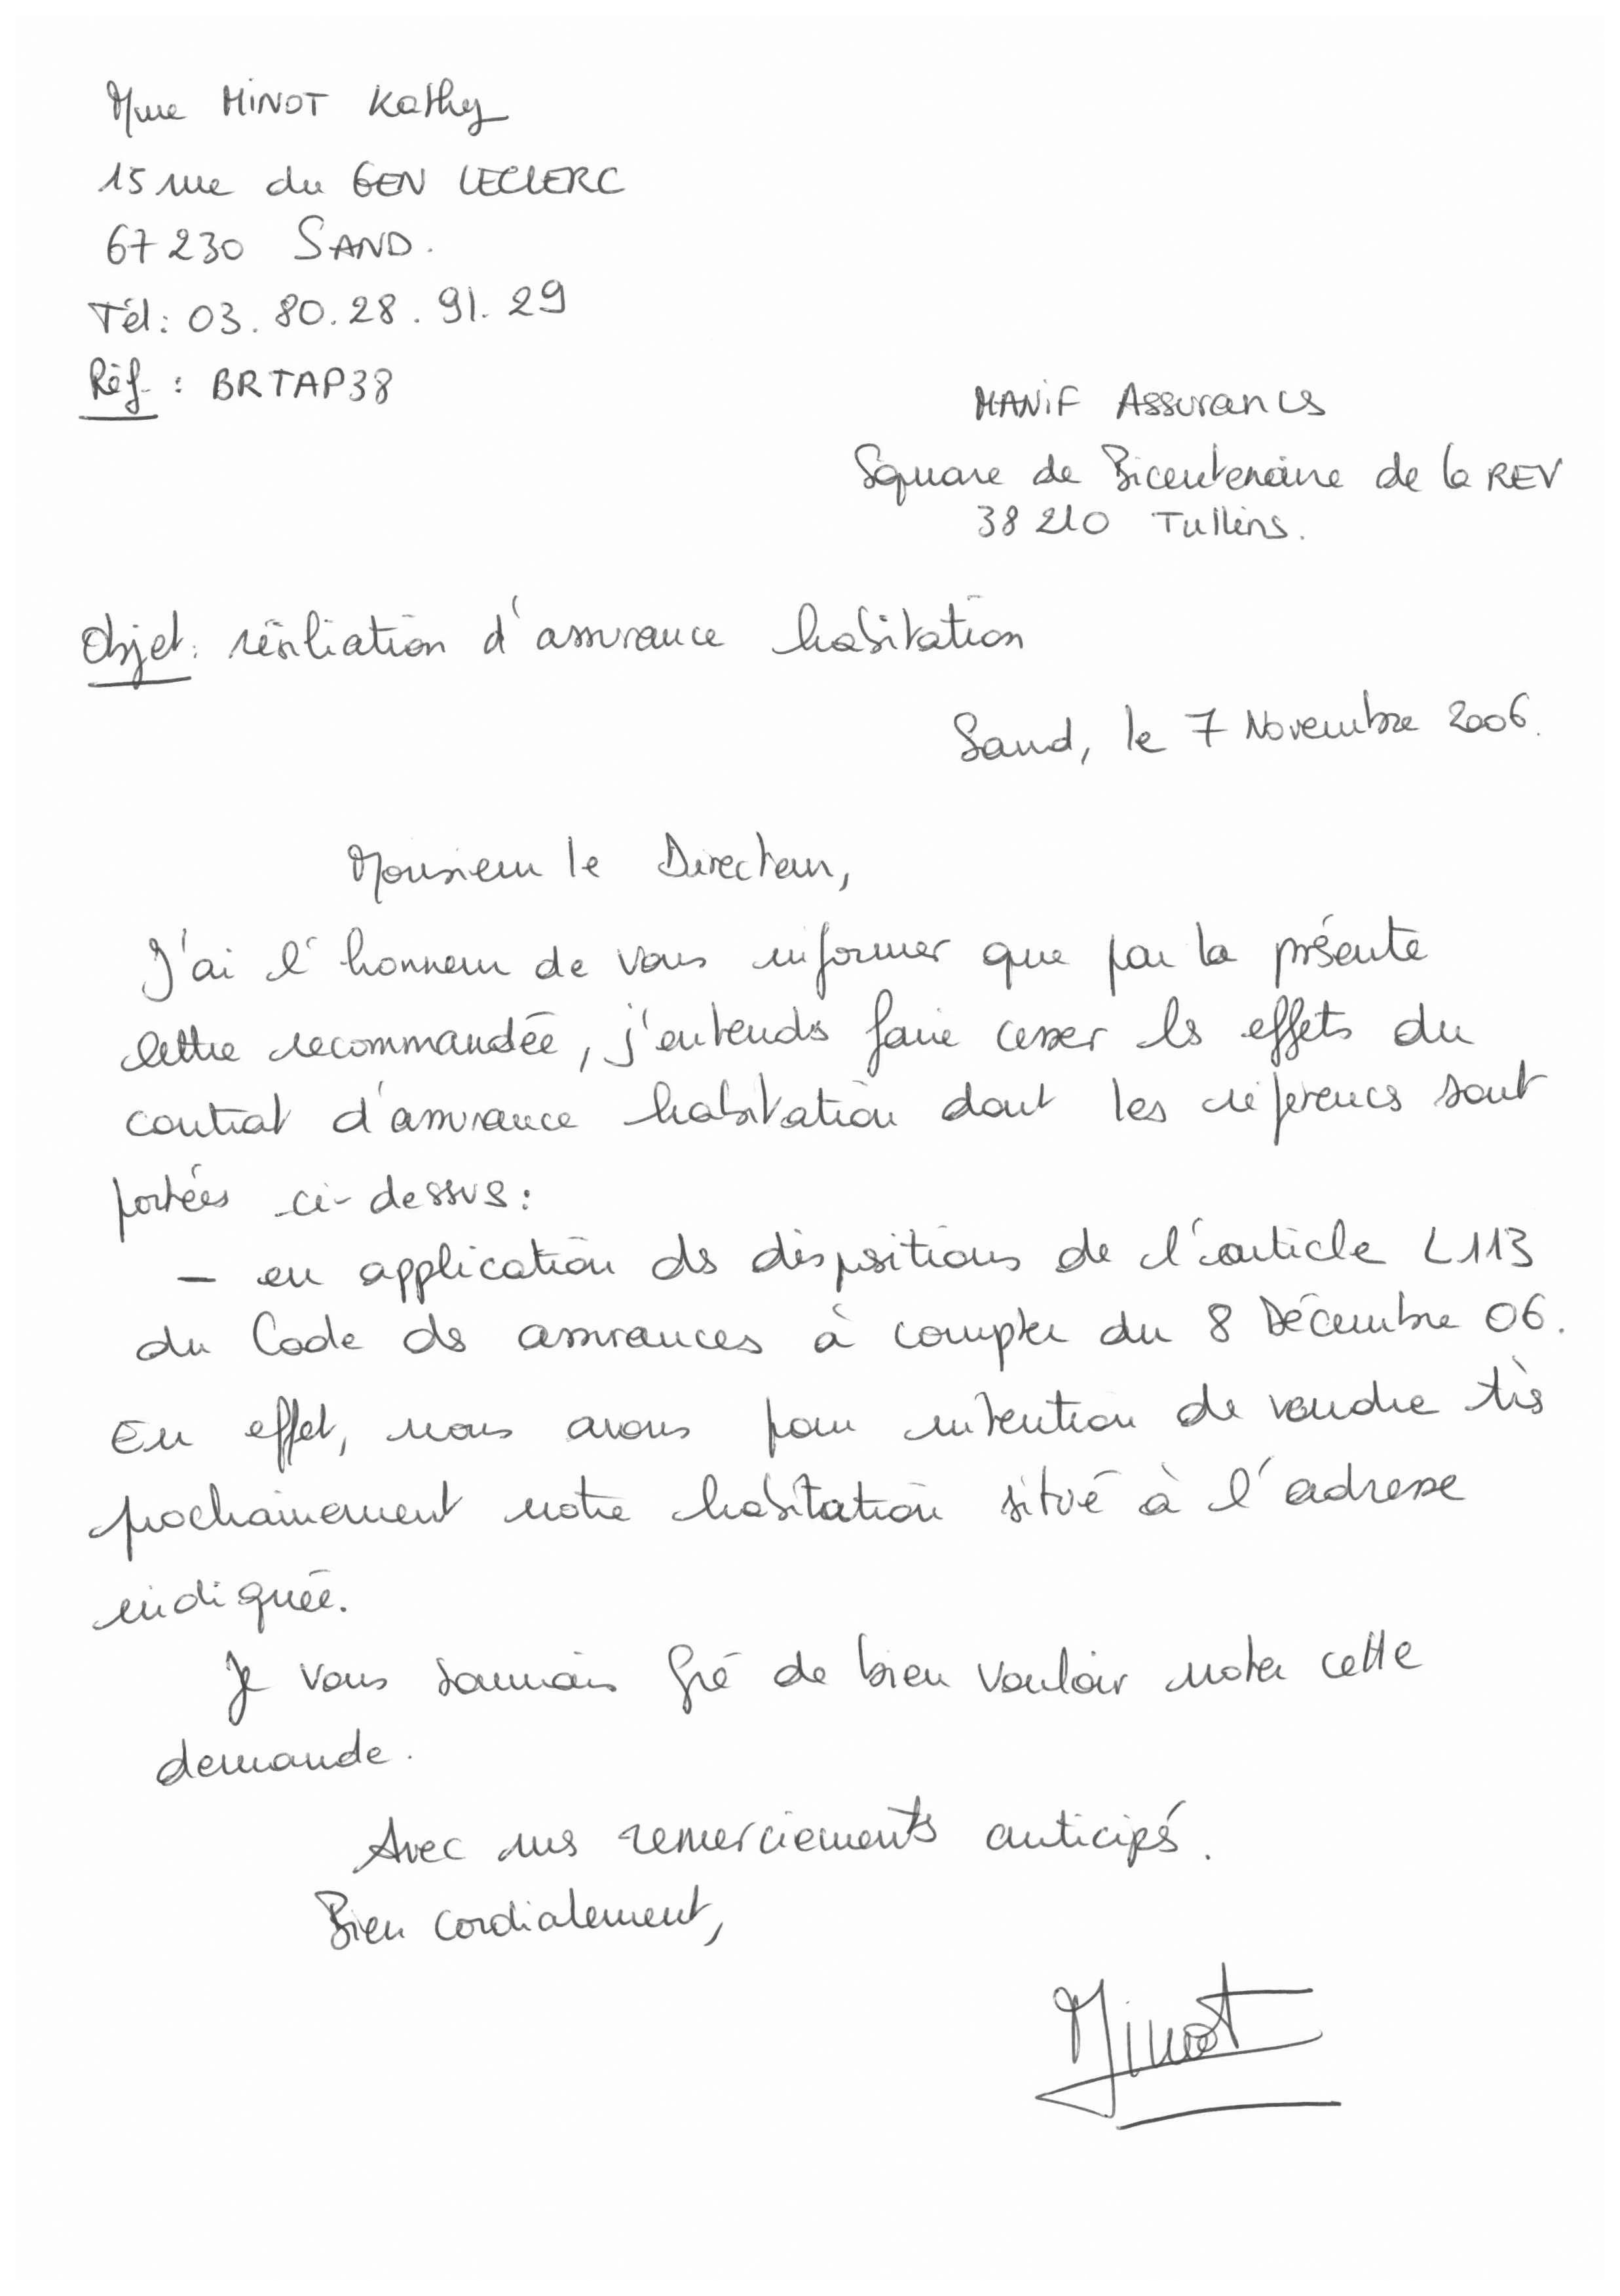 Mme MINOT Kathy
15 rue du GEN LECLERC
67230 SAND.
Tél: 03.80.28.91.29
Réf : BRTAP38
MANIF Assurances
Square de Bicentenaire de la REV
38210 Tullins.
Objet: résiliation d'assurance habitation
Sand, le 7 Novembre 2006.
Monsieur le Directeur,
J'ai l'honneur de vous informer que par la présente
lettre recommandée, j'entends faire cesser les effets du
contrat d'assurance habitation dont les références sont
portées ci-dessus:
- en application des dispositions de l'article L113
du Code des assurances à compter du 8 Décembre 06.
En effet, nous avons pour intention de vendre très
prochainement notre habitation situé à l'adresse
indiquée.
Je vous saurais gré de bien vouloir noter cette
demande.
Avec mes remerciements anticipés.
Bien cordialement,
Minot